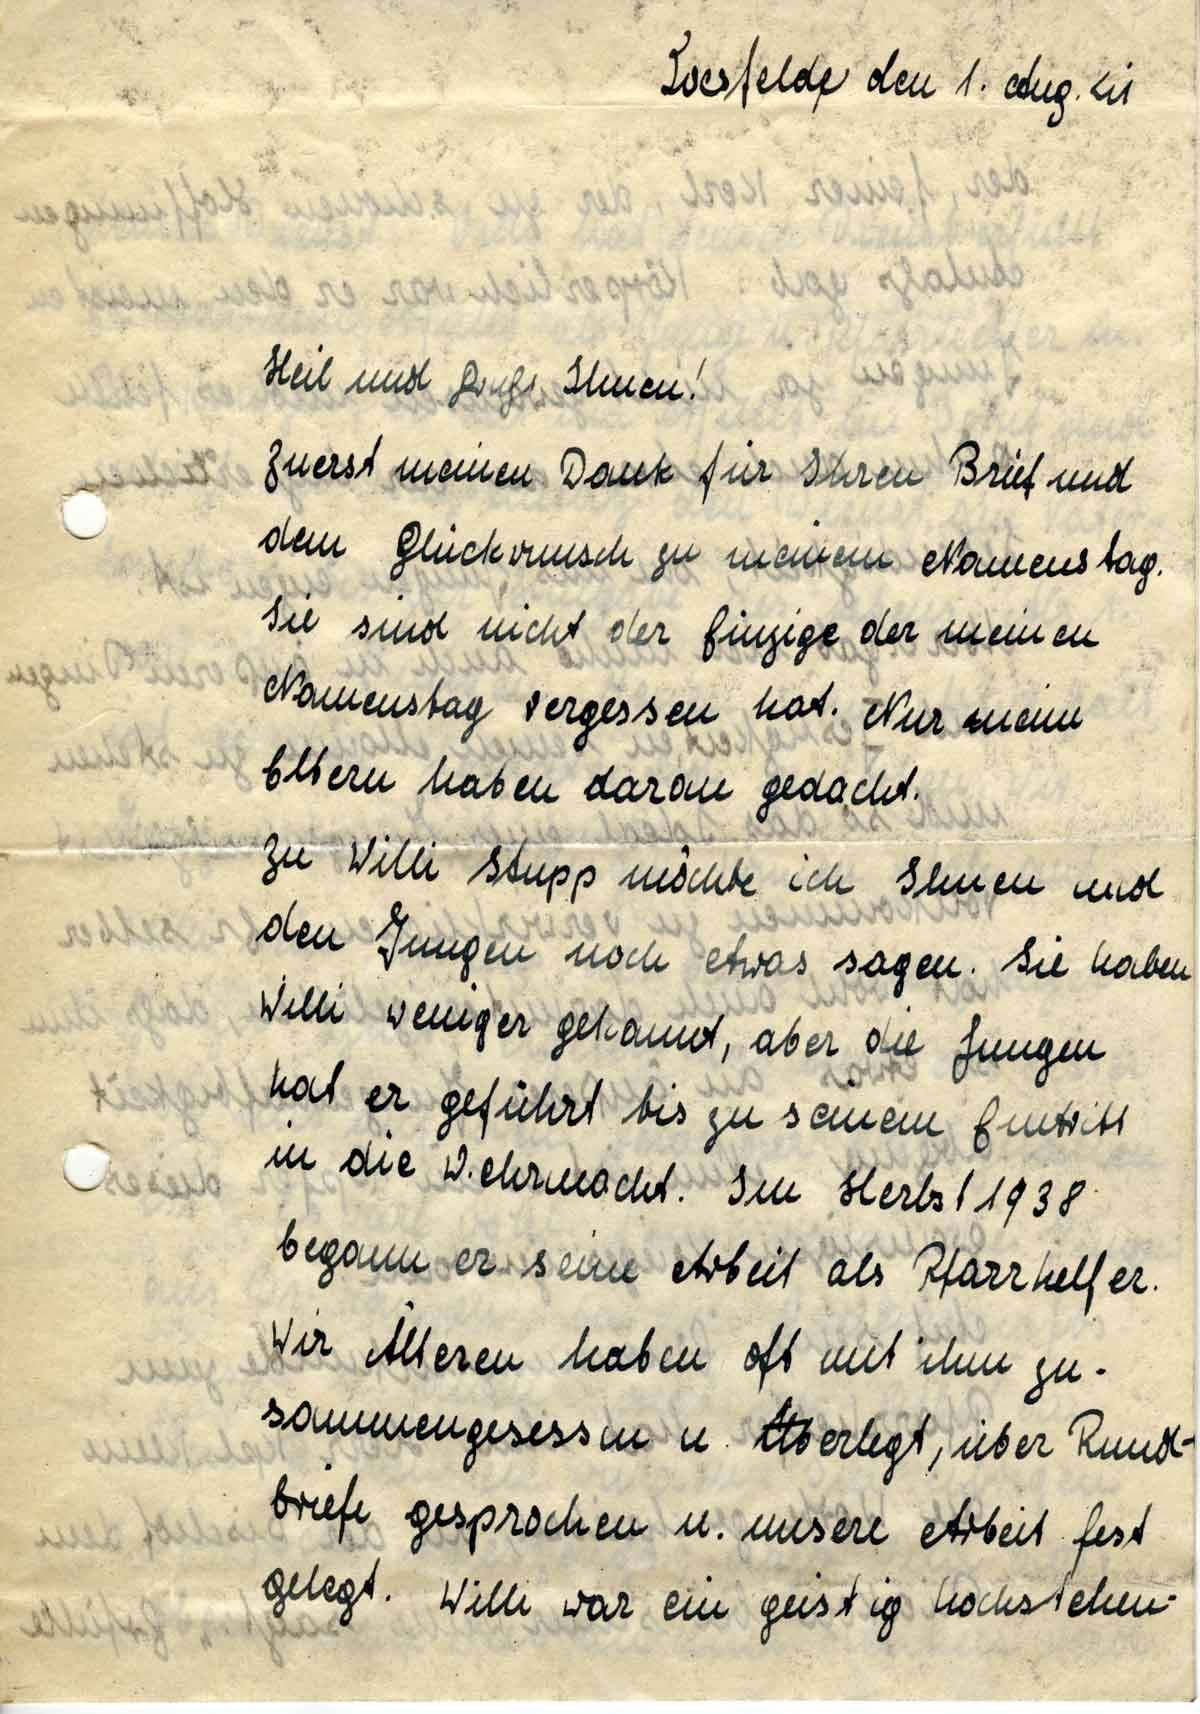 den 1. Aug. 41
Heil und Gruß Ihnen!
Zuerst meinen Dank für Ihren Brief und
dem Glückwunsch zu meinem Namenstag.
Sie sind nicht der Einzige der meinen
Namenstag vergessen hat. Nur meine
Eltern haben daran gedacht.
Zu Willi Stupp möchte ich Ihnen und
den Jungen noch etwas sagen. Sie haben
Willi weniger gekannt, aber die Jungen
hat er geführt bis zu seinem Eintritt
in die Wehrmacht. Im Herbst 1938
begann er seine Arbeit als Pfarrhelfer.
Wir Älteren haben oft mit ihm zu-
sammengesessen u. überlegt, über Rund-
briefe gesprochen u. unsere Arbeit fest
gelegt. Willi war ein geistig hochstehen-